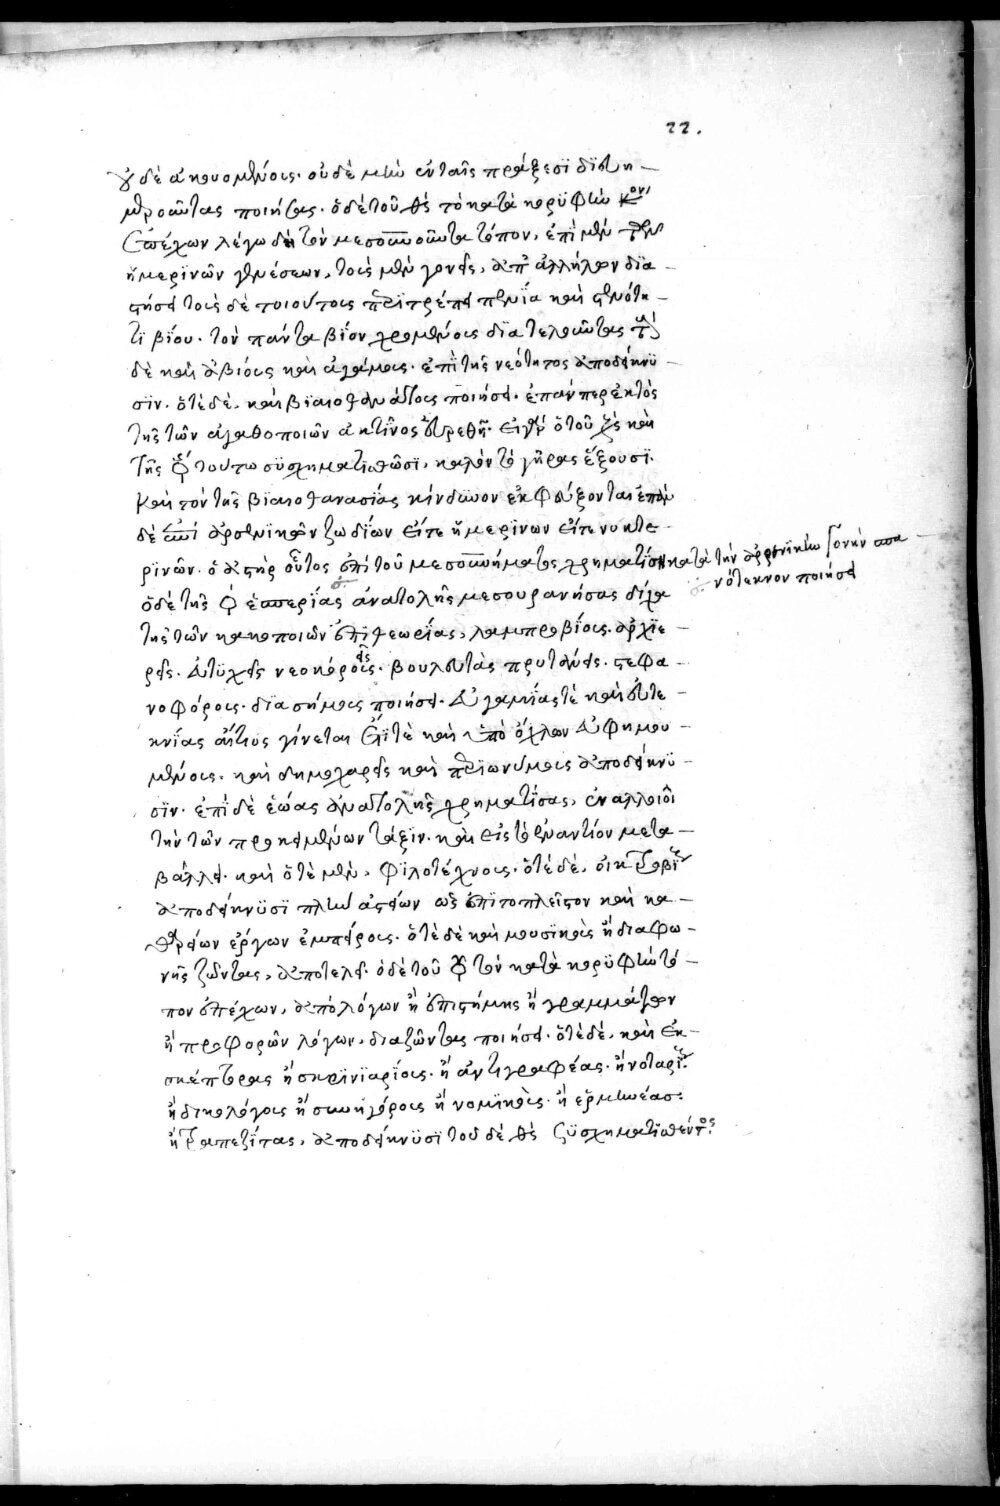 22.
οὐδὲ ἀκουομένοις. οὐδὲ μὴν ἐν ταῖς πράξεσϊ δϊευη-
μεροῦντας ποιήσας. ὁ δὲ τοῦ τὸ κατὰ κορϋφὴν
ἐπέχων λέγω δὲ τὸν μεσουρανοῦντα τόπον, ἐπῒ μὲν τῶν
ἡμερϊνῶν γενέσεων, τοὺς μὲν γονεῖς, ἀπ' ἀλλήλων δϊα-
στήσει τοὺς δὲ τοιούτοις περιτρέπει πενίᾳ καὶ στενότη-
τι βίου. τὸν πάντα βίον χρωμένοις δϊατελοῦντας
δὲ καὶ ἀβιοις καὶ ἀγάμοις. ἐπῒ τῆς νεότητος ἀποδείκνϋ-
σϊν. ὁτὲ δὲ, καὶ βϊαιοθανάτους ποιήσει. ἐπάνπερ ἐκτὸς
τῆς τῶν ἀγαθοποιῶν ἀκτῖνος εὑρεθῇ. εἰ γὰρ ὁ τοῦ καὶ
τῆς ♀ τούτω σϋσχηματισθῶσϊ, καλὸν τὸ γῆρας ἕξουσϊ.
καὶ τὸν τῆς βϊαιοθανασίας κίνδυνον ἐκφεύξονται ἐπὰν
δὲ ἐπὶ ἀρσενϊκῶν ζωδίων εἴτε ἡμερϊνων εἴτε νυκτε-
ρϊνῶν. ὁ ἀστὴρ οὗτος ἐπὶ τοῦ μεσουρανήματος χρηματίση κατὰ τὴν ἀρρενϊκὴν γονὴν σπα-
νότεκνον ποιήσει
ὁ δὲ τῆς ♀ ἑσπερίας ἀνατολῆς μεσουρανήσας δίχα
τῆς τῶν κακοποιῶν ἐπϊθεωρίας, λαμπροβίοις. ἀρχϊε-
ρεῖς. εὐτϋχεῖς νεοκόροις. βουλευτὰς πρυτάνεις. στεφα-
νοφόροις. δϊασήμοις ποιήσει. εὐγαμίας τὲ καὶ εὐτε-
κνίας αἴτιος γίνεται ἔτϊ τὲ καὶ ὑπὸ ὄχλων εὐφημου-
μένοις. καὶ δημοχαρεῖς καὶ περιωνύμοις ἀποδείκνϋ-
σϊν. ἐπῒ δὲ ἑῴας ἀνατολῆς χρηματίσας, ἐναλλοιοῖ
τὴν τῶν προκειμένων τάξϊν. καὶ εἰς τὸ ἐναντίον μετα-
βάλλει. καὶ ὁτὲ μὲν, φϊλοτέχνοις. ὁτὲ δὲ,
ἀποδείκνϋσϊ πλὴν ἀστείων ὡς ἐπϊτοπλεῖστον καὶ κα-
θαρείων ἔργων ἐμπείροις. ὁτὲ δὲ καὶ μουσϊκοὺς ἢ διαφω-
νῆς ζῶντας, ἀποτελεῖ. ὁ δὲ τοῦ ☿ τὸν κατὰ κορϋφὴν τό-
πον ἐπέχων, ἀπὸ λόγων ἢ ἐπιστήμης ἢ γραμμάτων
ἢ προφορῶν λόγων. διαζῶντας ποιήσει. ὁτὲ δὲ, καὶ ἐκ-
σκέπτορας ἢ σκρϊνϊαρίοις. ἢ ἀντιγραφέας. ἢ νοταρί
ἢ δικολόγοις ἢ συνηγόροις ἢ νομϊκοὺς. ἢ ἑρμηνέας.
ἢ τραπεζίτας, ἀποδείκνϋσϊ τοῦ δὲ σϋσχηματισθέντος.